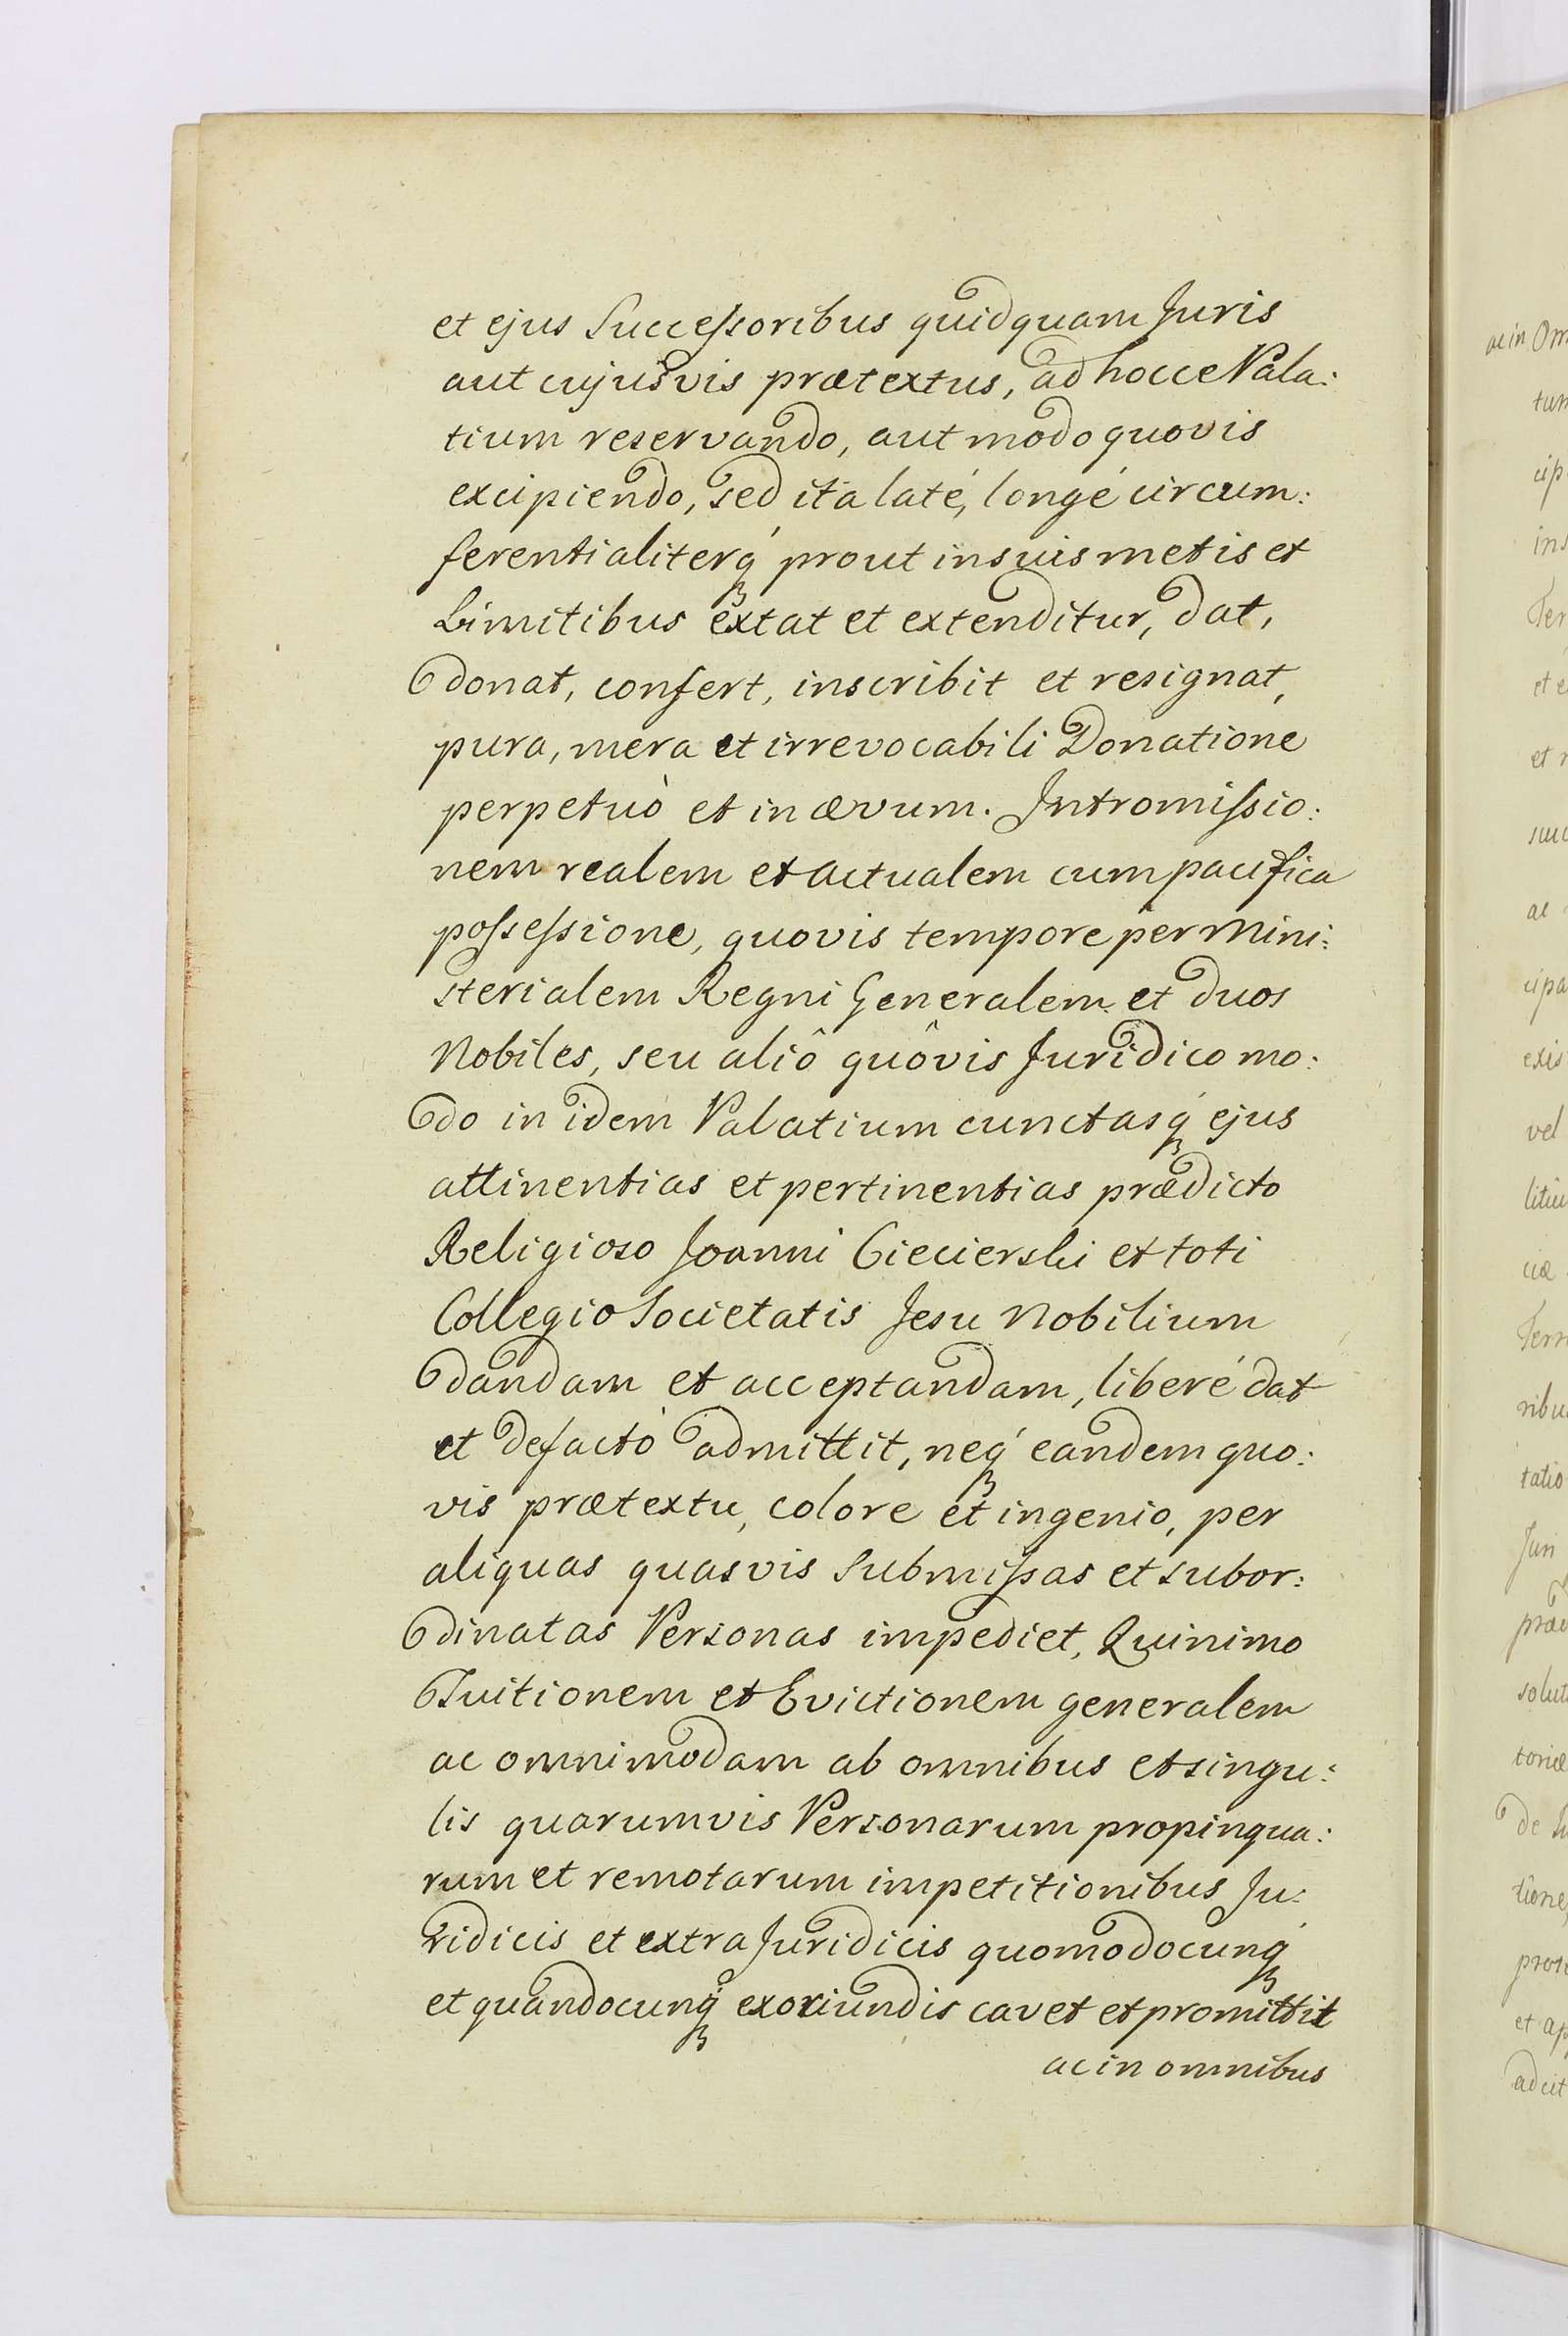 et ejus Successoribus quidquam Juris
aut cujusvis prætextus, ad hocce Pala:
tium reservando, aut modo quovis
excipiendo, sed ita laté, longé circum:
ferentialiterq́ prout in suis metis et
Limitibus extat et extenditur, dat,
donat, confert, inscribit et resignat,
pura, mera et irrevocabili Donatione
perpetuò et in ævum. Intromissio:
nem realem et actualem cum pacifica
possessione, quovis tempore per Mini:
sterialem Regni Generalem et duos
Nobiles, seu aliô quôvis Juridico mo:
do in idem Palatium cunctasq́ ejus
attinentias et pertinentias prædicto
Religioso Joanni Ciecierski et toti
Collegio Societatis Jesu Nobilium
dandam et acceptandam, liberé dat
et defactò admittit, neq́ eandem quo:
vis prætextu, colore et ingenio, per
aliquas quasvis submissas et subor:
dinatas Personas impediet, Quinimo
Tuitionem et Evictionem generalem
ac omnimodam ab omnibus et singu:
lis quarumvis Personarum propinqua:
rum et remotarum impetitionibus Ju:
ridicis et extra Juridicis quomodocunq́
et quandocunq́ exoriundis cavet et promittit
ac in omnibus
ac in Om
tum
cip
ins
Ter
et e
et r
succ
ac
cipa
exis
vel
litiu
ciæ
Terr
ribu
tatio
Juri
præ
solut
toriæ
de
tione
prot
et ap
ad cit